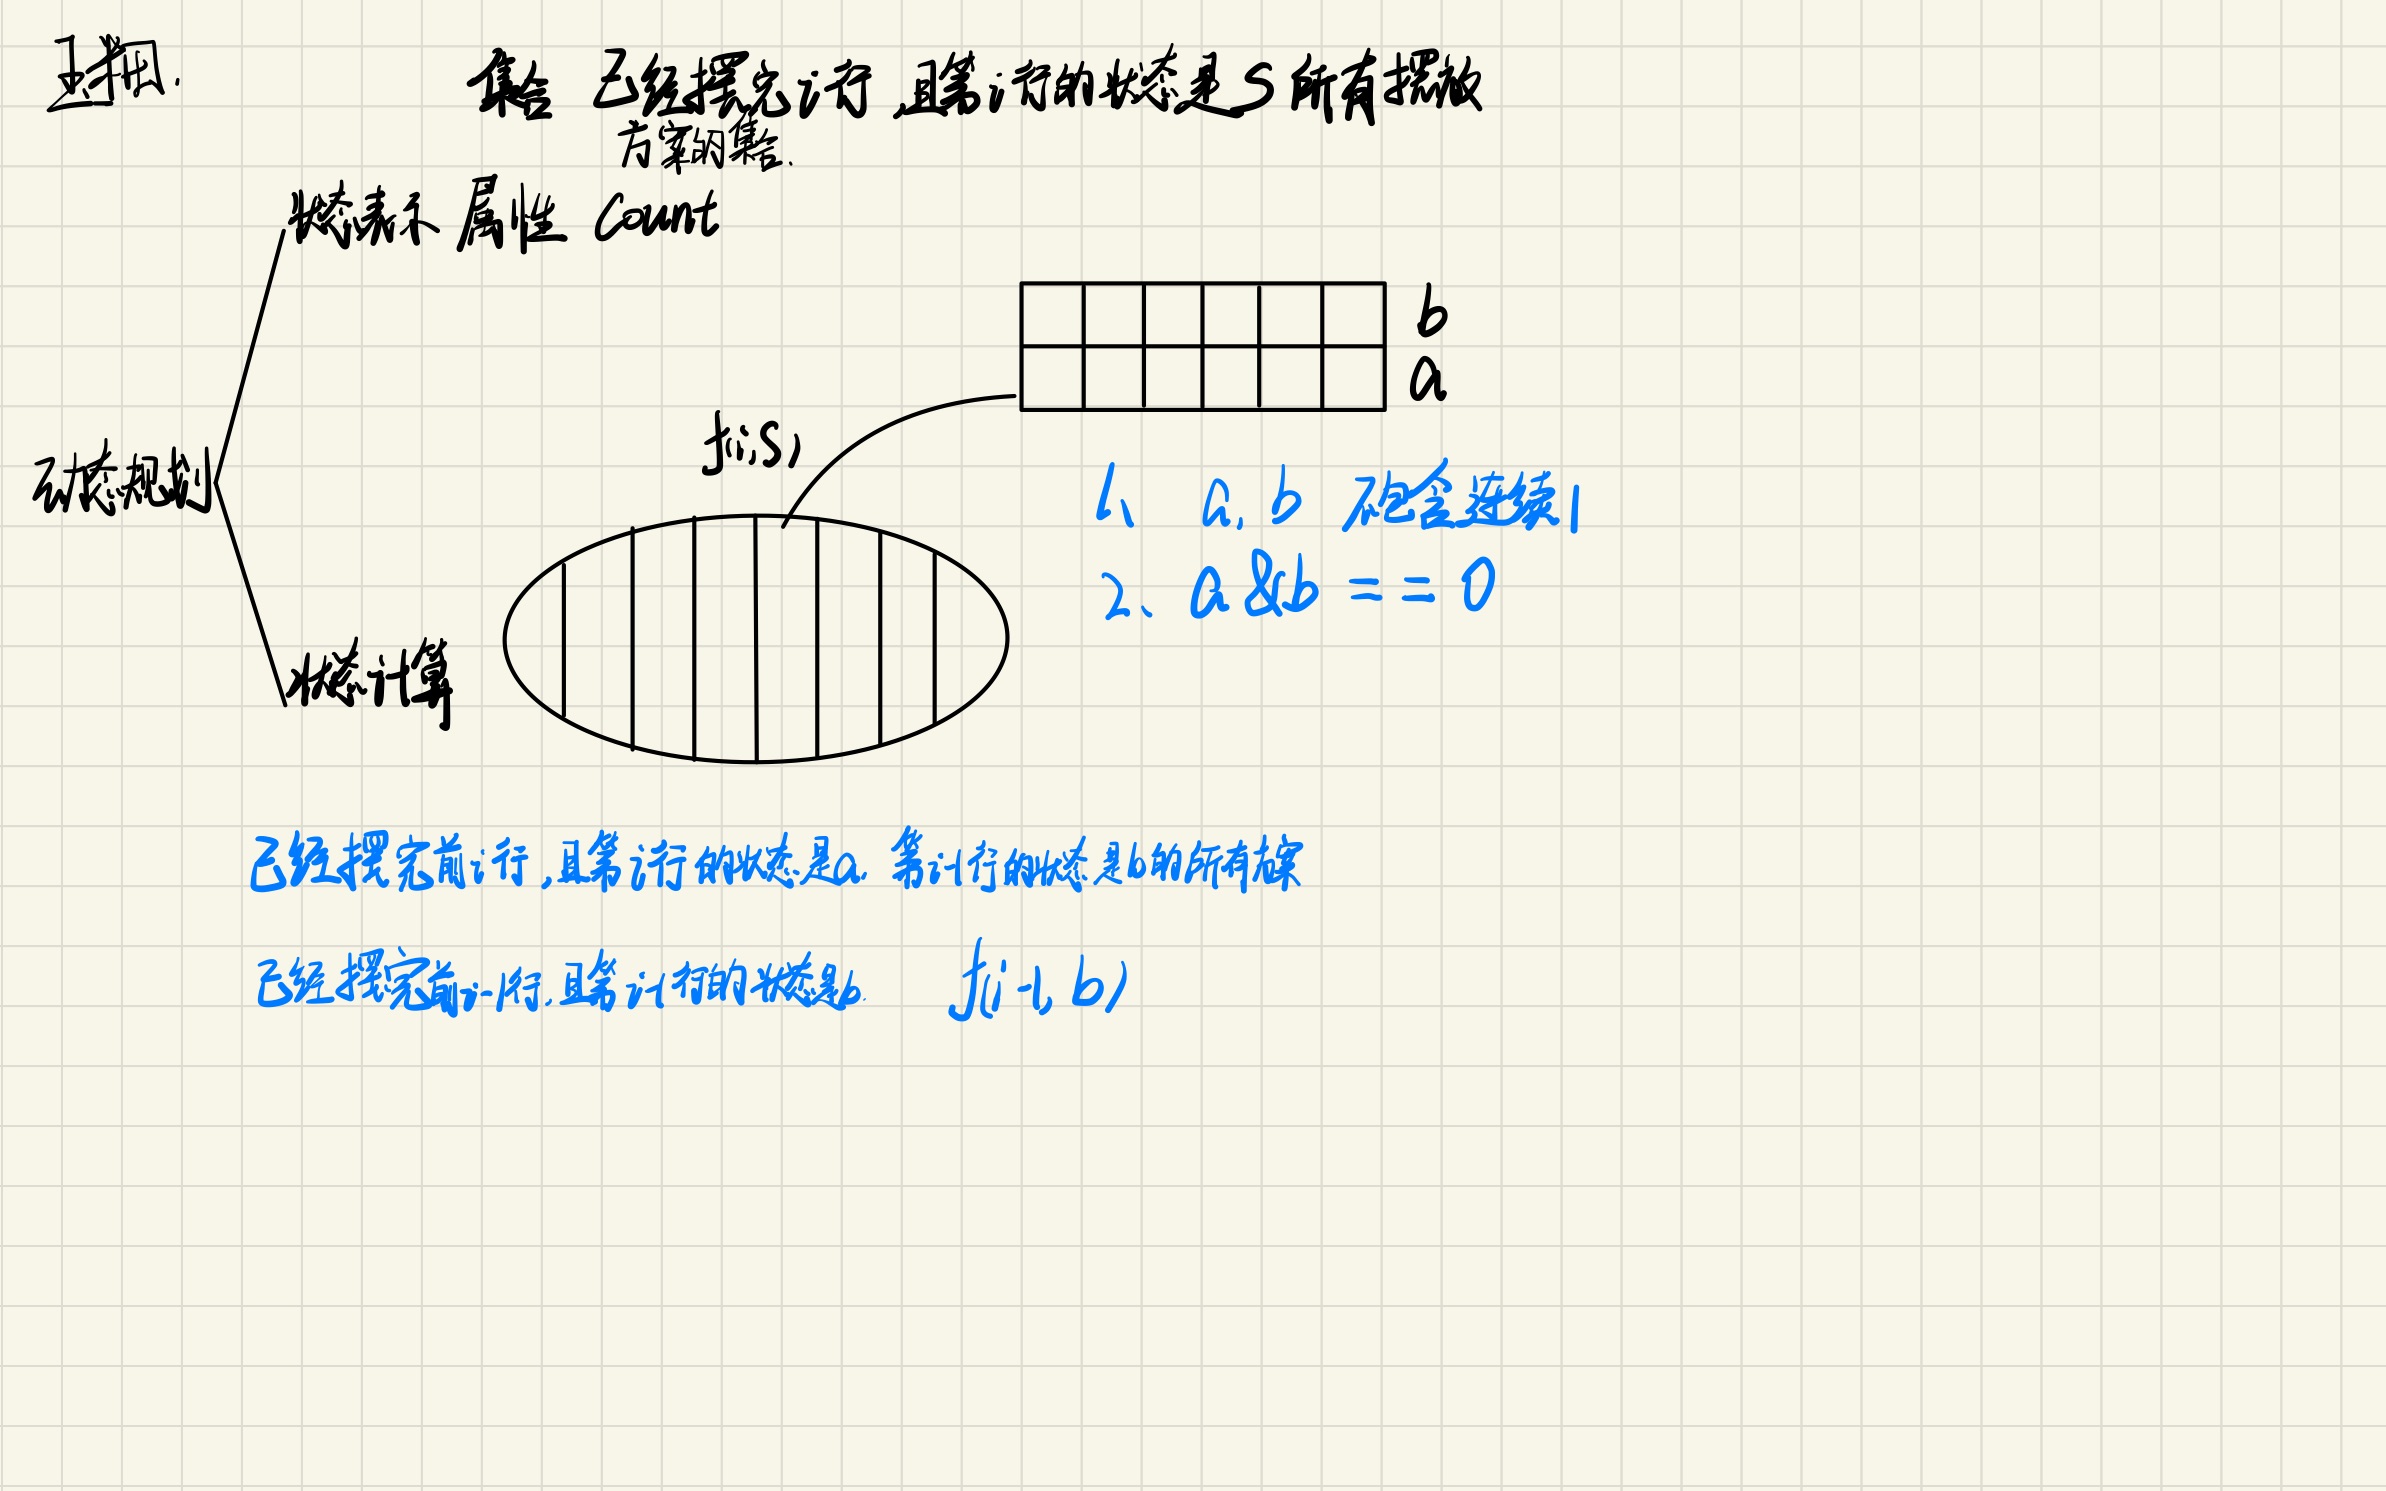 玉米田.
集合 已经摆完i行,且第i行的状态是S所有摆放
方案的集合.
状态表示 属性 Count
b
a
f(i,S)
动态规划
1、 a,b 不包含连续1
2、 a&b == 0
状态计算
已经摆完前i行,且第i行的状态是a. 第i-1行的状态是b的所有方案
已经摆完前i-1行,且第i-1行的状态是b. f(i-1,b)